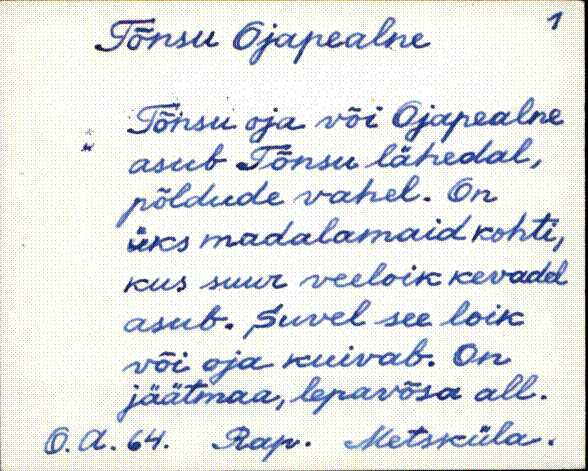 1
Tõnsu Ojapealne
Tõnsu oja või Ojapealne
asub Tõnsu lähedal,
põldude vahel. On
üks madalamaid kohti,
kus suur veeloik kevadel
asub. Suvel see loik
või oja kuivab. On
jäätmaa, lepavõsa all.
O. A. 64. Rap. Metsküla.